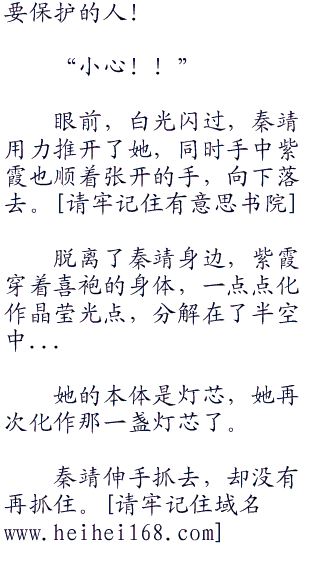 要保护的人！
“小心！！”
眼前，白光闪过，秦靖
用力推开了她，同时手中紫
霞也顺着张开的手，向下落
去。[请牢记住有意思书院]
脱离了秦靖身边，紫霞
穿着喜袍的身体，一点点化
作晶莹光点，分解在了半空
中...
她的本体是灯芯，她再
次化作那一盏灯芯了。
秦靖伸手抓去，却没有
再抓住。[请牢记住域名
www.heihei168.com]